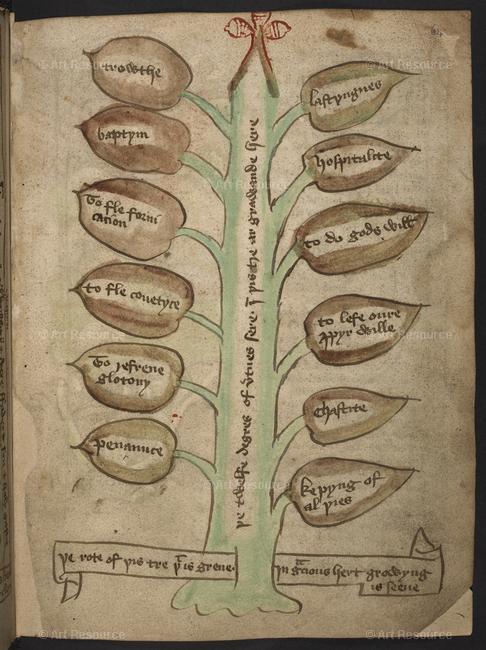 trowthe
baptym
To fle forni
cation
to fle covetyce
To refrene
glotony
penannce
lastyngnes
hospitalite
to do gods will
to lefe oure
ppyr wille
Chastite
kepyng of
al pies
þe twelfe degres of vtues sere. þ pis the ar growande here
þe rote of þis tre þ is grene.
In gcious hert growyng
is seene
© Art Resource
© Art Resource
© Art Resource
© Art Resource
© Art Resource
© Art Resource